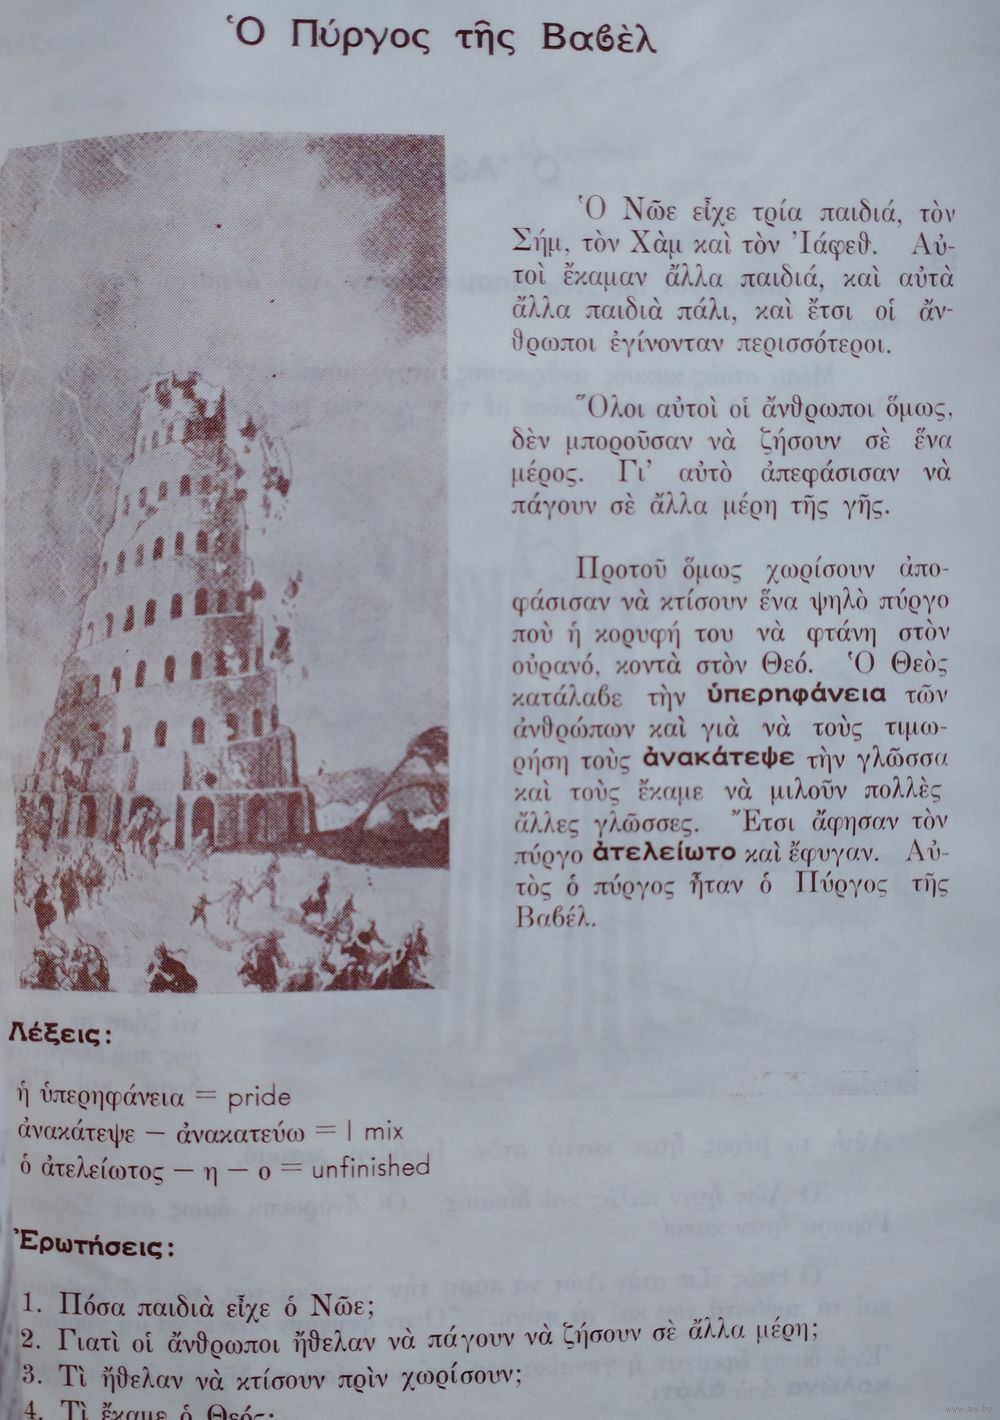 Ὁ Πύργος τῆς Βαβὲλ
Ὁ Νῶε εἶχε τρία παιδιά, τὸν
Σήμ, τὸν Χὰμ καὶ τὸν Ἰάφεθ. Αὐ-
τοὶ ἔκαμαν ἄλλα παιδιά, καὶ αὐτὰ
ἄλλα παιδιὰ πάλι, καὶ ἔτσι οἱ ἄν-
θρωποι ἐγίνονταν περισσότεροι.
Ὅλοι αὐτοὶ οἱ ἄνθρωποι ὅμως,
δὲν μποροῦσαν νὰ ζήσουν σὲ ἕνα
μέρος. Γι’ αὐτὸ ἀπεφάσισαν νὰ
πάγουν σὲ ἄλλα μέρη τῆς γῆς.
Προτοῦ ὅμως χωρίσουν ἀπο-
φάσισαν νὰ κτίσουν ἕνα ψηλὸ πύργο
ποὺ ἡ κορυφή του νὰ φτάνη στὸν
οὐρανό, κοντὰ στὸν Θεό. Ὁ Θεὸς
κατάλαβε τὴν ὑπερηφάνεια τῶν
ἀνθρώπων καὶ γιὰ νὰ τοὺς τιμω-
ρήση τοὺς ἀνακάτεψε τὴν γλῶσσα
καὶ τοὺς ἔκαμε νὰ μιλοῦν πολλὲς
ἄλλες γλῶσσες. Ἔτσι ἄφησαν τὸν
πύργο ἀτελείωτο καὶ ἔφυγαν. Αὐ-
τὸς ὁ πύργος ἦταν ὁ Πύργος τῆς
Βαβέλ.
Λέξεις:
ἡ ὑπερηφάνεια = pride
ἀνακάτεψε — ἀνακατεύω = I mix
ὁ ἀτελείωτος — η — ο = unfinished
Ἐρωτήσεις:
1. Πόσα παιδιὰ εἶχε ὁ Νῶε;
2. Γιατὶ οἱ ἄνθρωποι ἤθελαν νὰ πάγουν νὰ ζήσουν σὲ ἄλλα μέρη;
3. Τὶ ἤθελαν νὰ κτίσουν πρὶν χωρίσουν;
4. Τὶ ἔκαμε ὁ Θεός;
www.ay.by